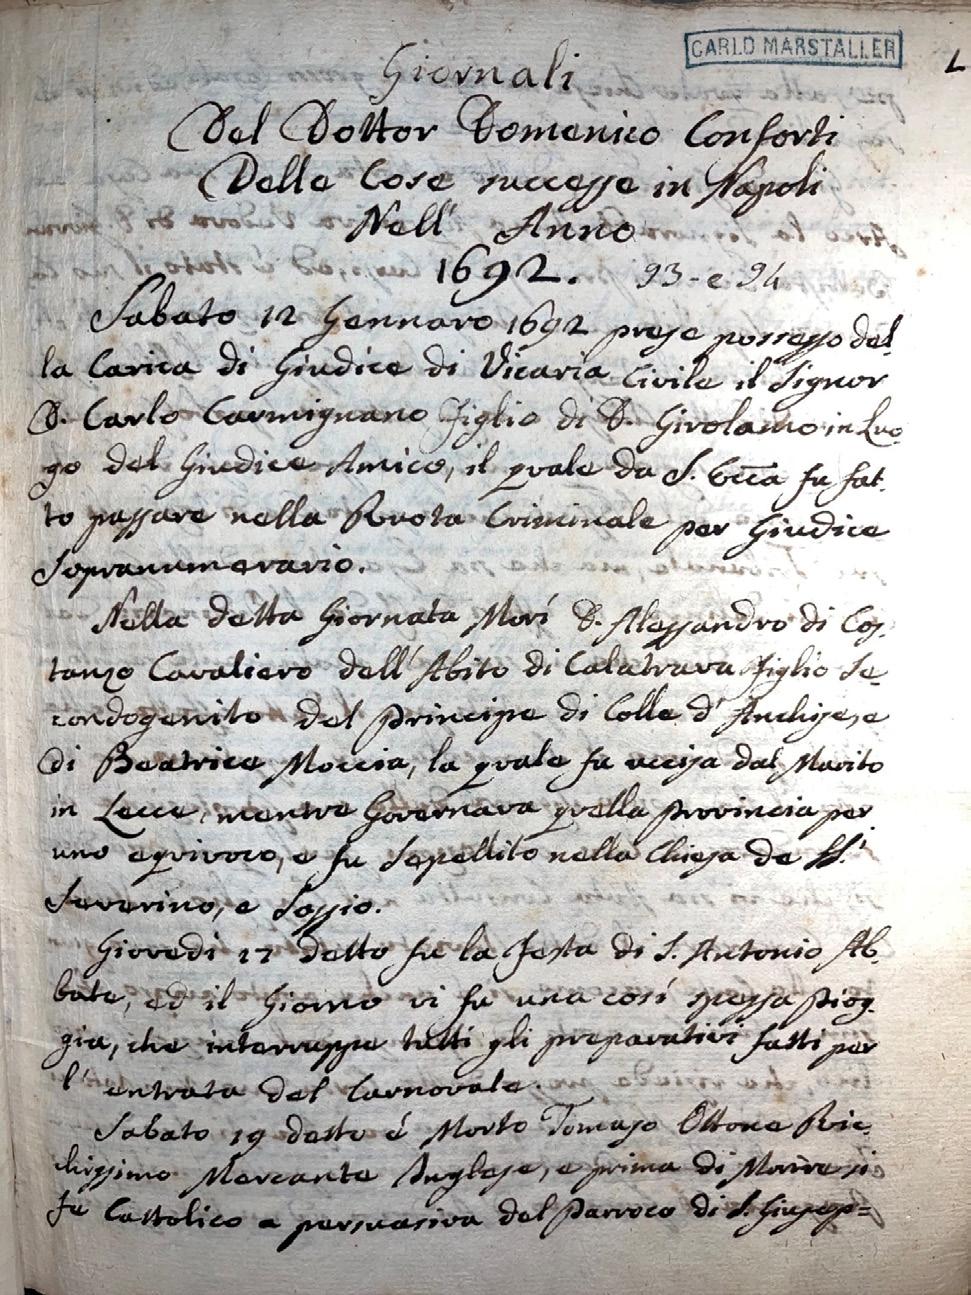 CARLO MARSTALLER
Giornali
Del Dottor Domenico Conforti
Delle Cose successe in Napoli
Nell' Anno
1692. 93-e 94
Sabato 12 Gennaro 1692 prese possesso del
la Carica di Giudice di Vicaria Civile il Signor
D. Carlo Carmignano Figlio di D. Girolamo in Luo
go del Giudice Amico, il quale da S. Ecc̄a fu fat
to passare nella Ruota Criminale per Giudice
Sopranumerario.
Nella detta Giornata Morì D. Alessandro di Cos
tanzo Cavaliero dell'Abito di Calatrava Figlio Se
condogenito del Principe di Colle d'Anchise, e
di Beatrice Moccia, la quale fu uccisa dal Marito
in Lecce, mentre Governava quella Provincia per
uno equivoco, e fu Sepellito nella Chiesa de SS.
Severino, e Sossio.
Giovedì 17 detto fu la Festa di S. Antonio Ab
bate, ed il Giorno vi fu una così spessa piog
gia, che interruppe tutti gli preparativi fatti per
l'entrata del Carnovale.
Sabato 19 detto é Morto Tomaso Ottone Ric
chissimo Mercante Inglese, e prima di Morire si
fe Cattolico a persuasiva del Parroco di S. Giusep=